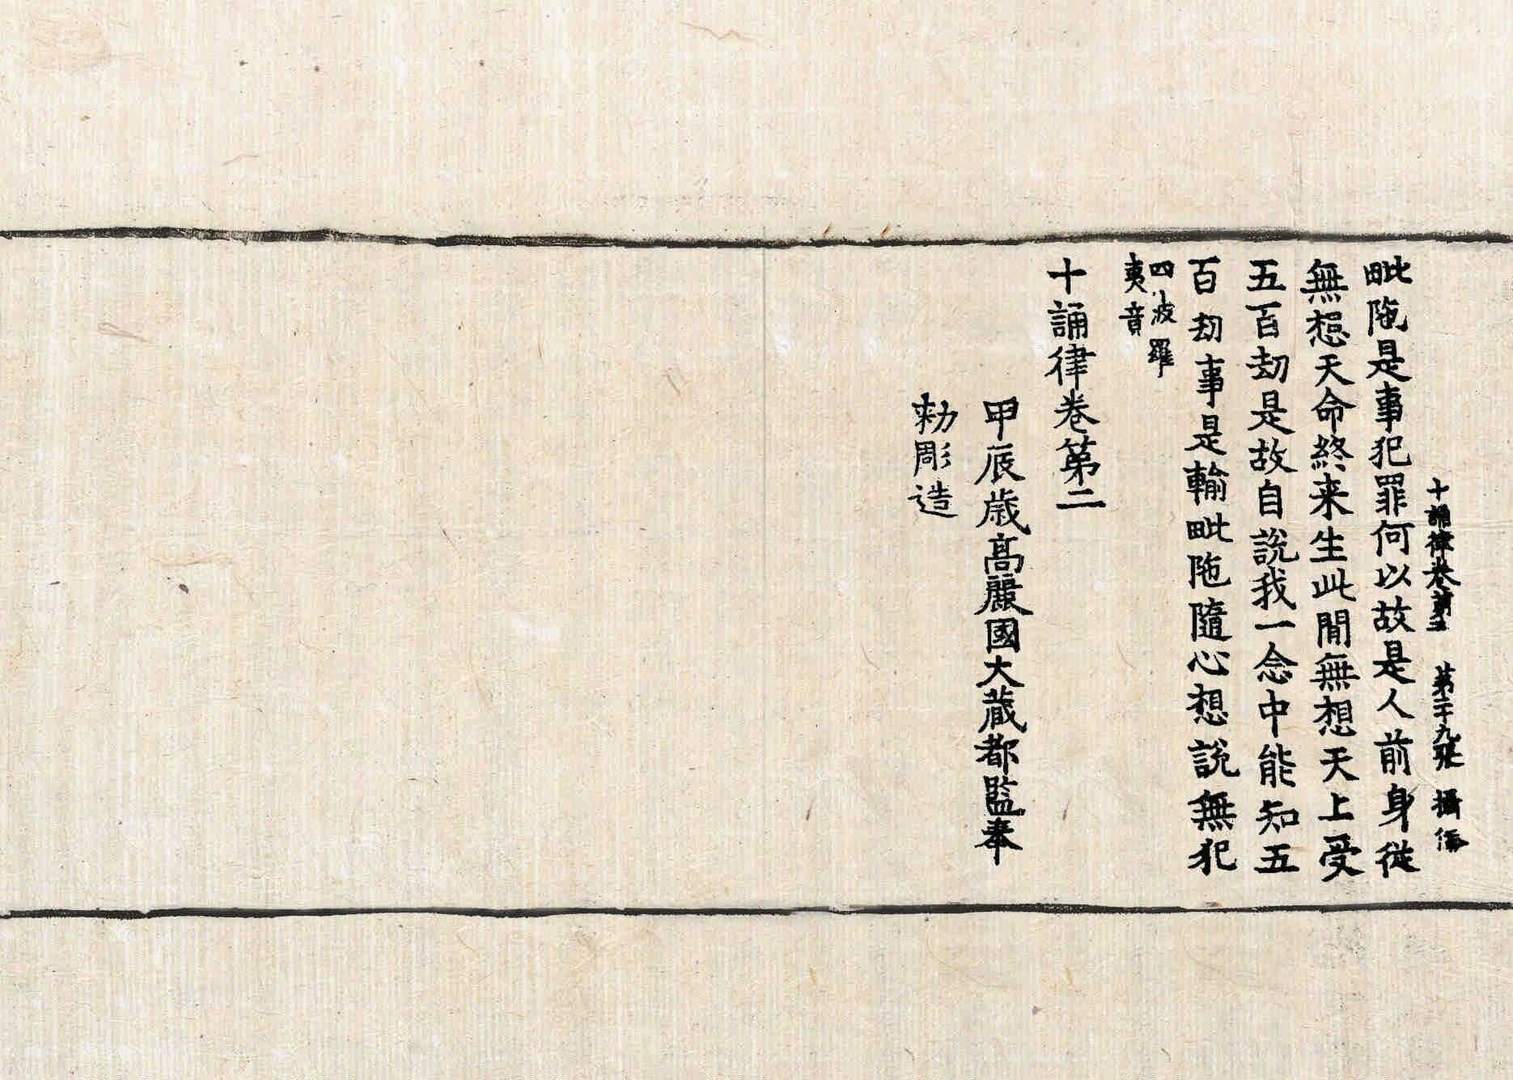 十誦律卷第二 第二十九張 攝
毗陁是事犯罪何以故是人前身從
無想天命終来生此閒無想天上受
五百劫是故自說我一念中能知五
百劫事是輸毗陁隨心想說無犯
四波羅
夷竟
十誦律卷第二
甲辰歲高麗國大藏都監奉
勑彫造